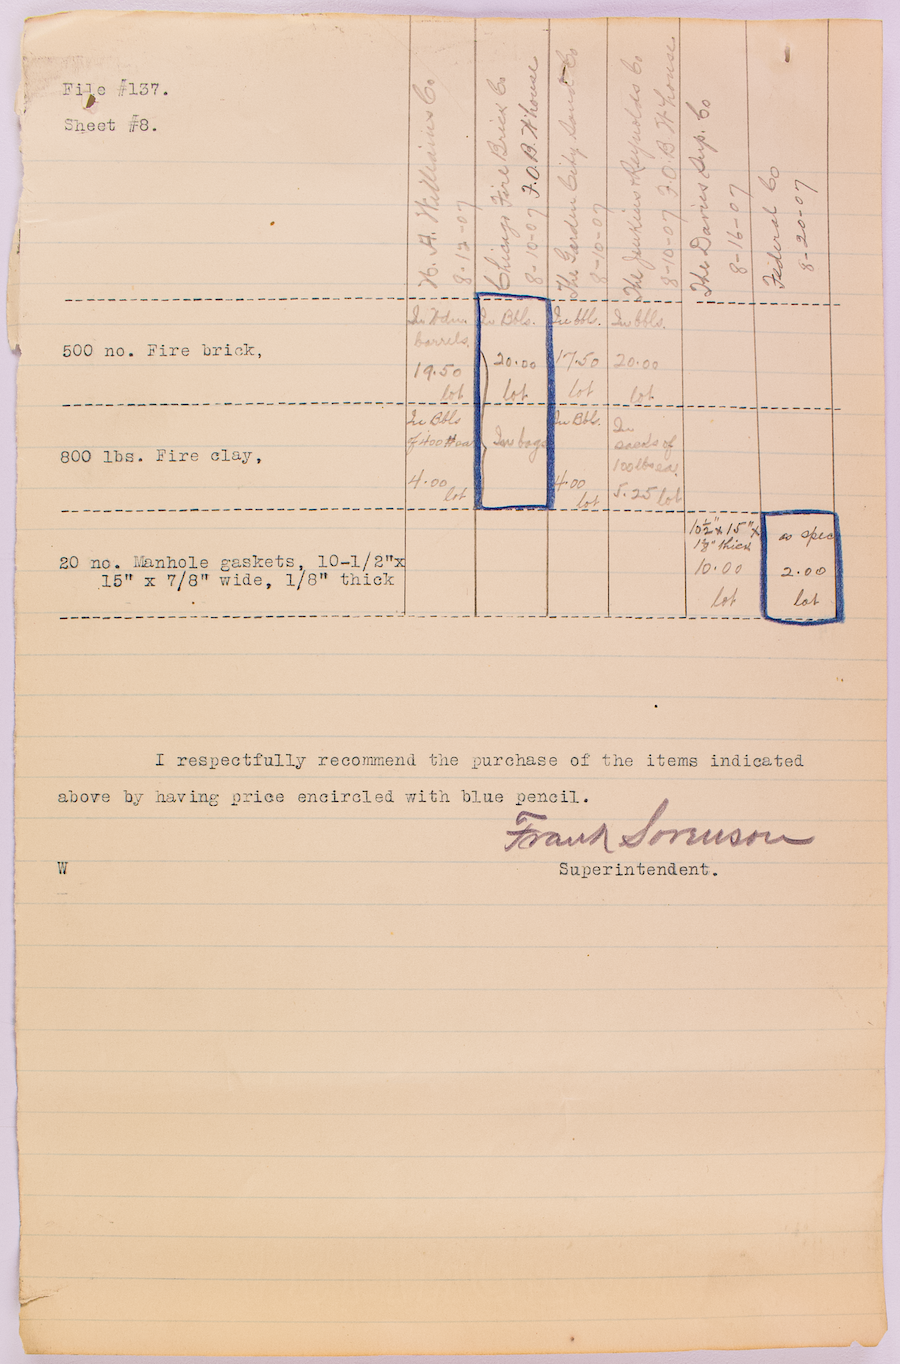 File #137.
Sheet #8.
H. A. Williams Co
8-12-07
Chicago Fire Brick Co
8-10-07 F.O.B. W'house
The Garden City Sand Co
8-10-07
The Jenkins & Reynolds Co
8-10-07 F.O.B. W'house
The Davies Sup. Co
8-16-07
Federal Co
8-20-07
500 no. Fire brick,
barrels.
19.50
lot
In Bbls.
20.00
lot
In bbl.
17.50
lot
In bbls.
20.00
lot
800 lbs. Fire clay,
In Bbls
of 400# ea
4.00
lot
In bags
In Bbls.
4.00
lot
In
sacks of
100lbs ea.
5.25 lot
20 no. Manhole gaskets, 10-1/2"x
15" x 7/8" wide, 1/8" thick
10½" x 15" x
1/8" thick
10.00
lot
as spec
2.00
lot
I respectfully recommend the purchase of the items indicated
above by having price encircled with blue pencil.
Frank Sorenson
W
Superintendent.